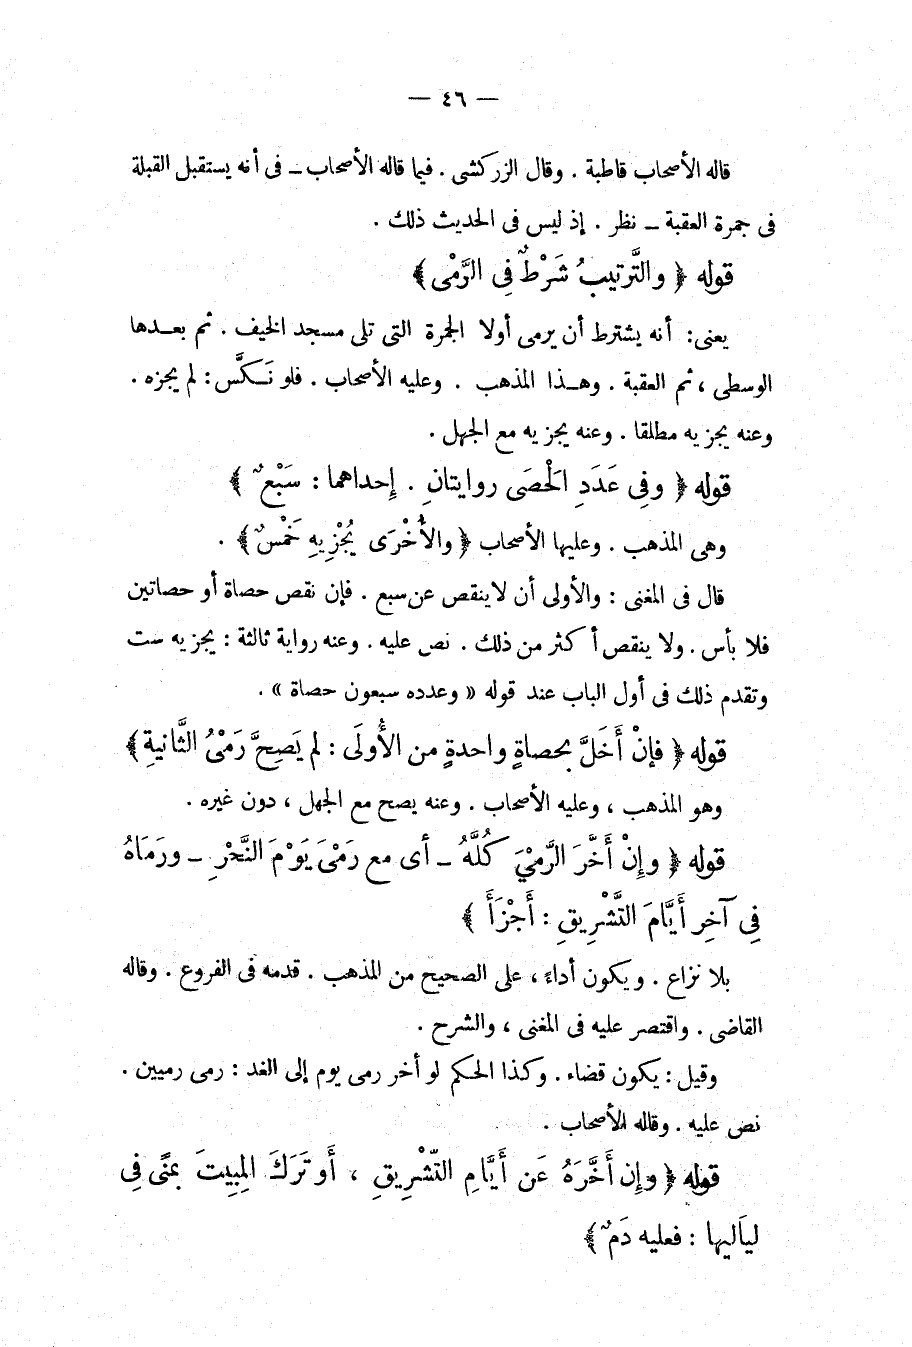 — ٤٦ —
قاله الأصحاب قاطبة . وقال الزركشى . فيما قاله الأصحاب ــ فى أنه يستقبل القبلة
فى جمرة العقبة ــ نظر . إذ ليس فى الحديث ذلك .
قوله ﴿ والتَّرتيبُ شَرْطٌ فِى الرَّمْى ﴾
يعنى : أنه يشترط أن يرمى أولا الجمرة التى تلى مسجد الخيف . ثم بعــدها
الوسطى ، ثم العقبة . وهــذا المذهب . وعليه الأصحاب . فلو نَــكَّس : لم يجزه .
وعنه يجزيه مطلقا . وعنه يجزيه مع الجهل .
قوله ﴿ وفِى عَدَدِ الْحَصَى روايتانِ . إحداهما : سَبْعٌ ﴾
وهى المذهب . وعليها الأصحاب ﴿ والأُخْرَى يُجْزِيهِ خَمْسٌ ﴾ .
قال فى المغنى : والأولى أن لاينقص عن سبع . فإن نقص حصاة أو حصاتين
فلا بأس . ولا ينقص أكثر من ذلك . نص عليه . وعنه رواية ثالثة : يجزيه ست
وتقدم ذلك فى أول الباب عند قوله « وعدده سبعون حصاة » .
قوله ﴿ فإنْ أَخَلَّ بحصاةٍ واحدةٍ من الأُولَى : لم يَصِحَّ رَمْىُ الثَّانيةِ ﴾
وهو المذهب ، وعليه الأصحاب . وعنه يصح مع الجهل ، دون غيره .
قوله ﴿ وإِنْ أَخَّرَ الرَّمْيَ كُلَّهُ ــ أى مع رَمْىَ يَوْمَ النَّحْرِ ــ ورَمَاهُ
فِى آخِرِ أَيَّامَ التَّشْرِيقِ : أَجْزَأَ ﴾
بلا نزاع . ويكون أداء ، على الصحيح من المذهب . قدمه فى الفروع . وقاله
القاضى . واقتصر عليه فى المغنى ، والشرح .
وقيل : يكون قضاء . وكذا الحكم لو أخر رمى يوم إلى الغد : رمى رميين .
نص عليه . وقاله الأصحاب .
قوله ﴿ وإن أَخَّرَهُ عَن أَيَّامِ التَّشْرِيقِ ، أَو تَرَكَ المِبِيتَ بمنًى فِى
ليَاليها : فعليه دَمٌ ﴾